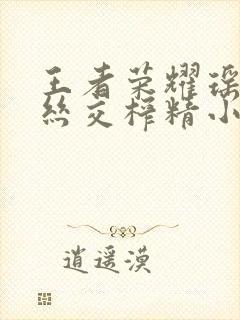 王者荣耀瑶
丝交榨精小
逍遥漠